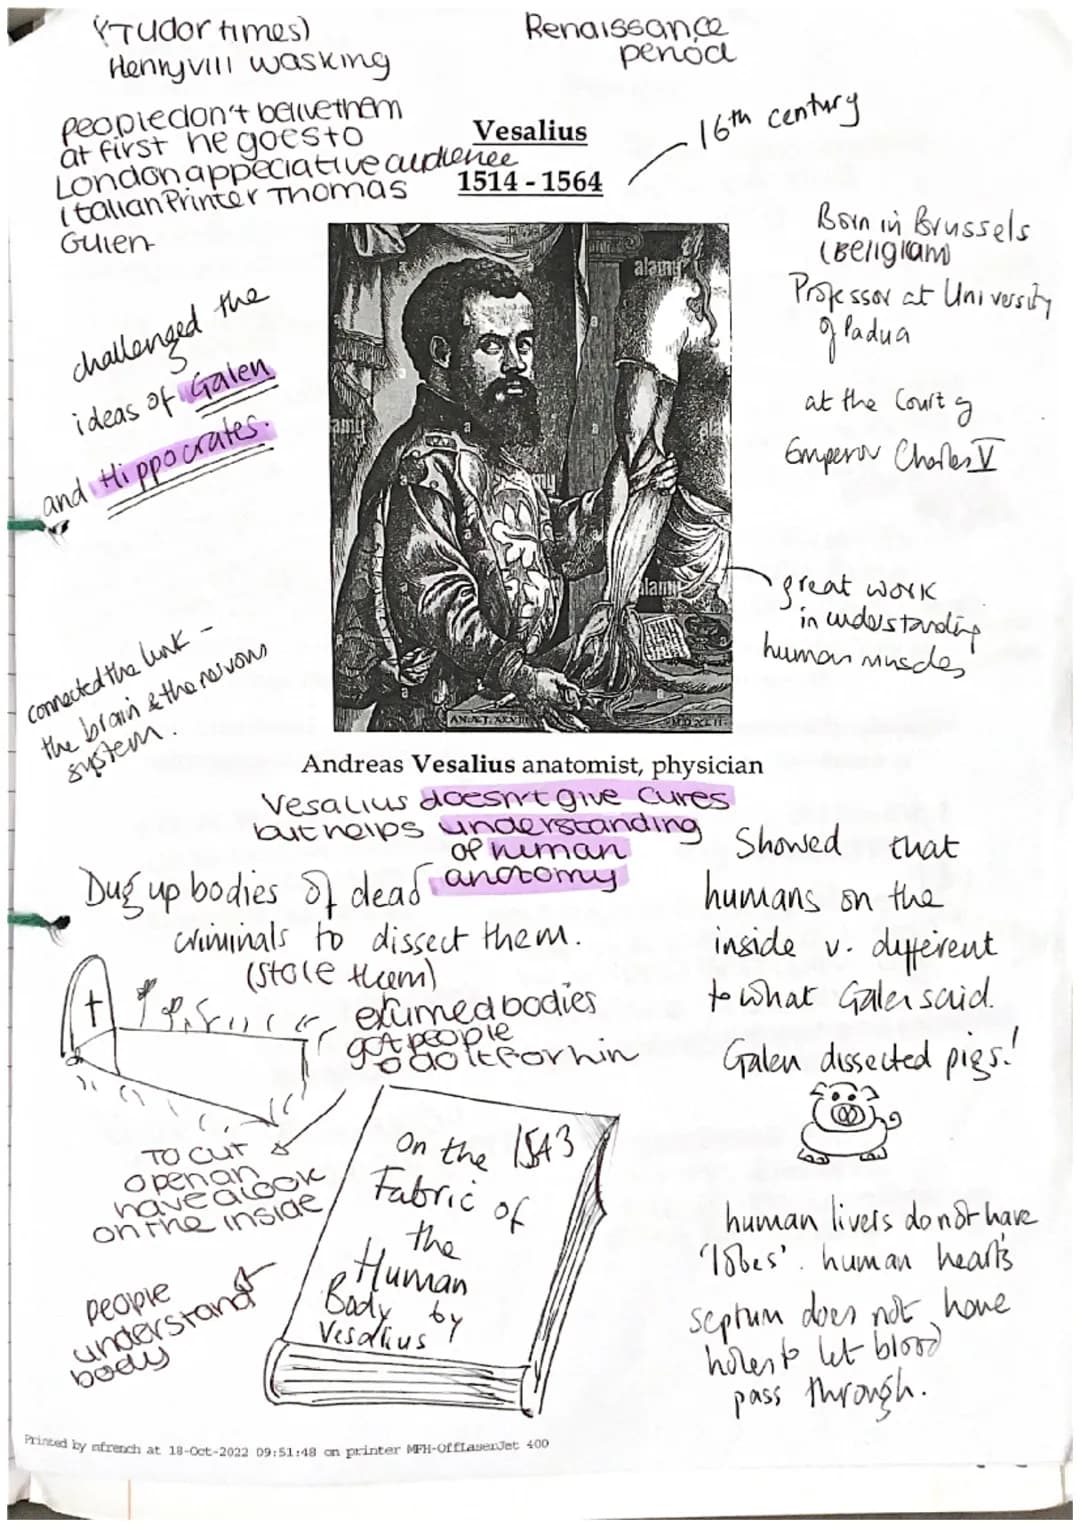 (Tudor times)
Henry VIII was king
Renaissance
period
people don't belive them
at first he goes to
London appeciative audience
Italian Printer Thomas
Guien
Vesalius
1514 - 1564
16th century
Born in Brussels
(Beligiam)
Professor at University
of Padua
at the Court of
Emperor Charles V
challenged the
ideas of Galen
and Hippocrates.
alamy
alamy
alamy
great work
in understanding
human muscles
connected the link -
the brain & the nervous
system.
Andreas Vesalius anatomist, physician
Vesalius doesn't give cures
but helps understanding
of human
anotomy
Dug up bodies of dead
criminals to dissect them.
(stole them)
exumed bodies
got people
to do it for him
Showed that
humans on the
inside v. different
to what Galen said.
Galen dissected pigs!
To cut
open an
have a look
on the inside
people
understand
body
On the 1543
Fabric of
the
Human
Body by
Vesalius
human livers do not have
'lobes'. human hearts
septum does not have
holes to let blood
pass through.
Printed by mfrench at 18-Oct-2022 09:51:48 on printer MFH-OffLaserJet 400